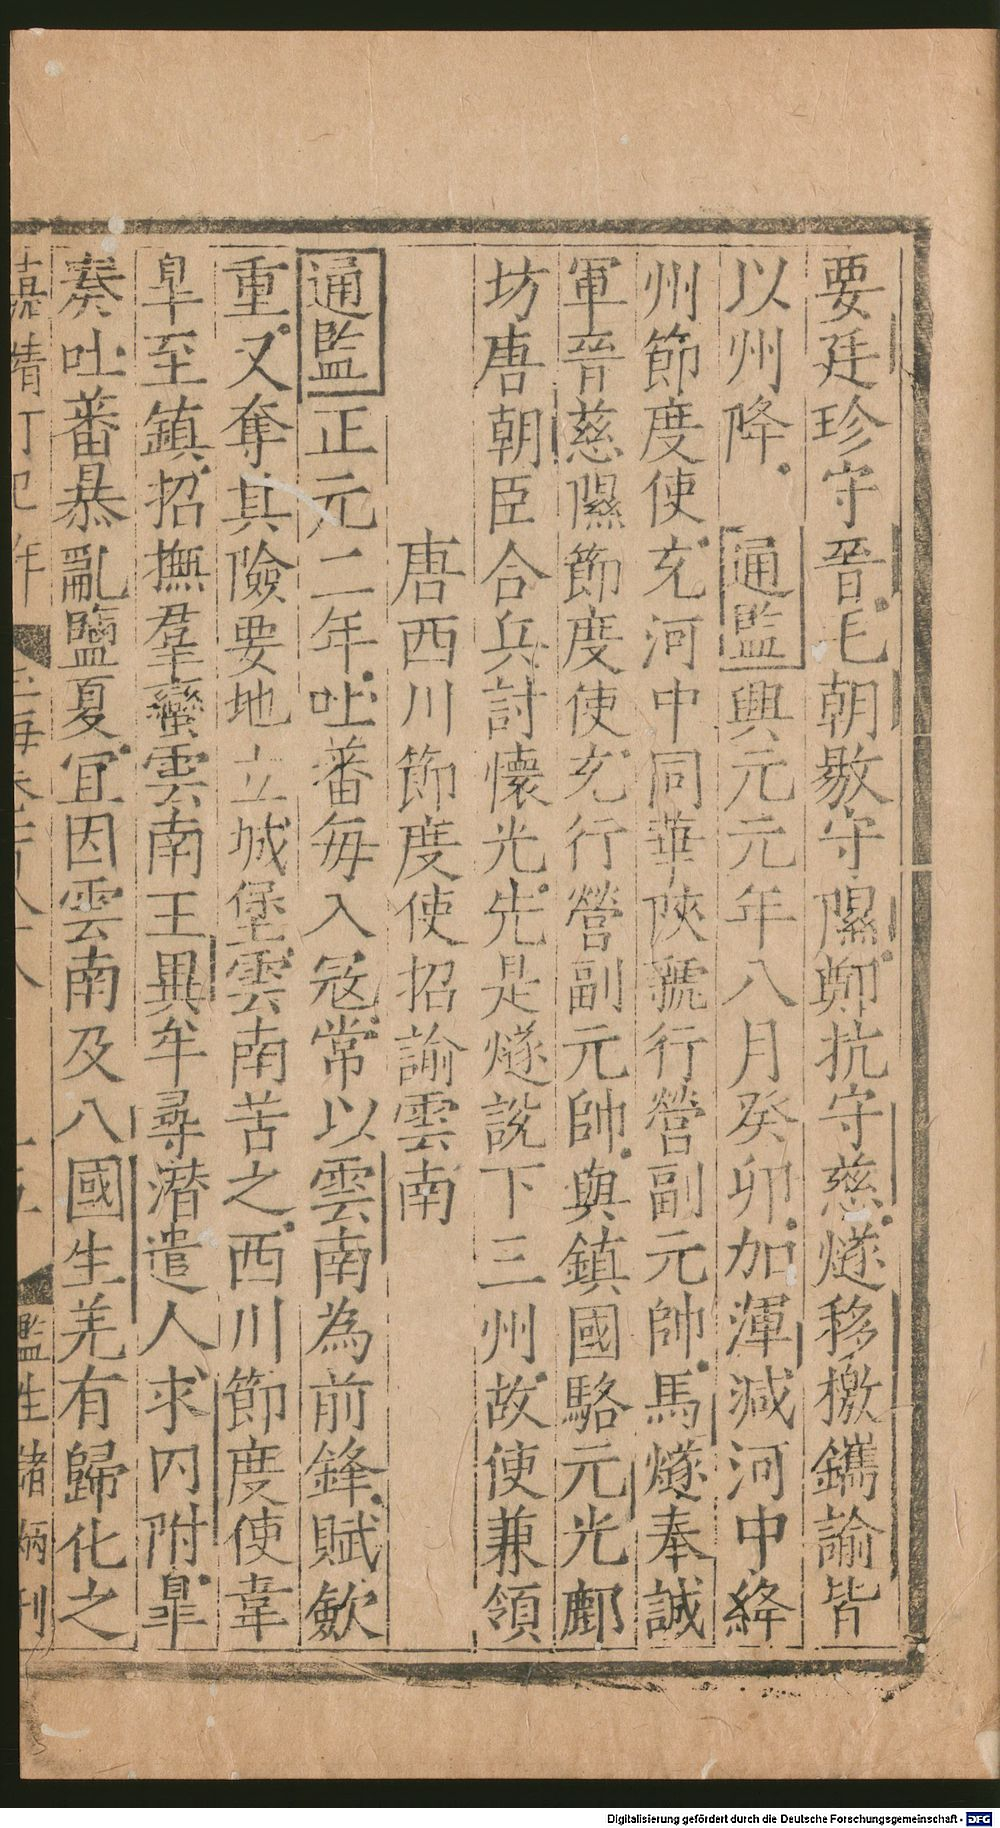 要廷珍守晉毛朝敭守隰鄭抗守慈燧移檄鐫諭皆
以州降通監興元元年八月癸卯加渾瑊河中絳
州節度使充河中同華陝虢行營副元帥馬燧奉誠
軍晉慈隰節度使充行營副元帥與鎮國駱元光鄜
坊唐朝臣合兵討懷光先是燧説下三州故使兼領
唐西川節度使招諭雲南
通監正元二年吐蕃毎入冦常以雲南為前鋒賦歛
重又奪其險要地立城堡雲南苦之西川節度使韋
皐至鎮招撫羣蠻雲南王異牟尋潜遣人求内附皐
奏吐蕃暴亂鹽夏宜因雲南及八國生羌有歸化之
嘉靖丁巳年
監生 刊
Digitalisierung gefördert durch die Deutsche Forschungsgemeinschaft - DFG